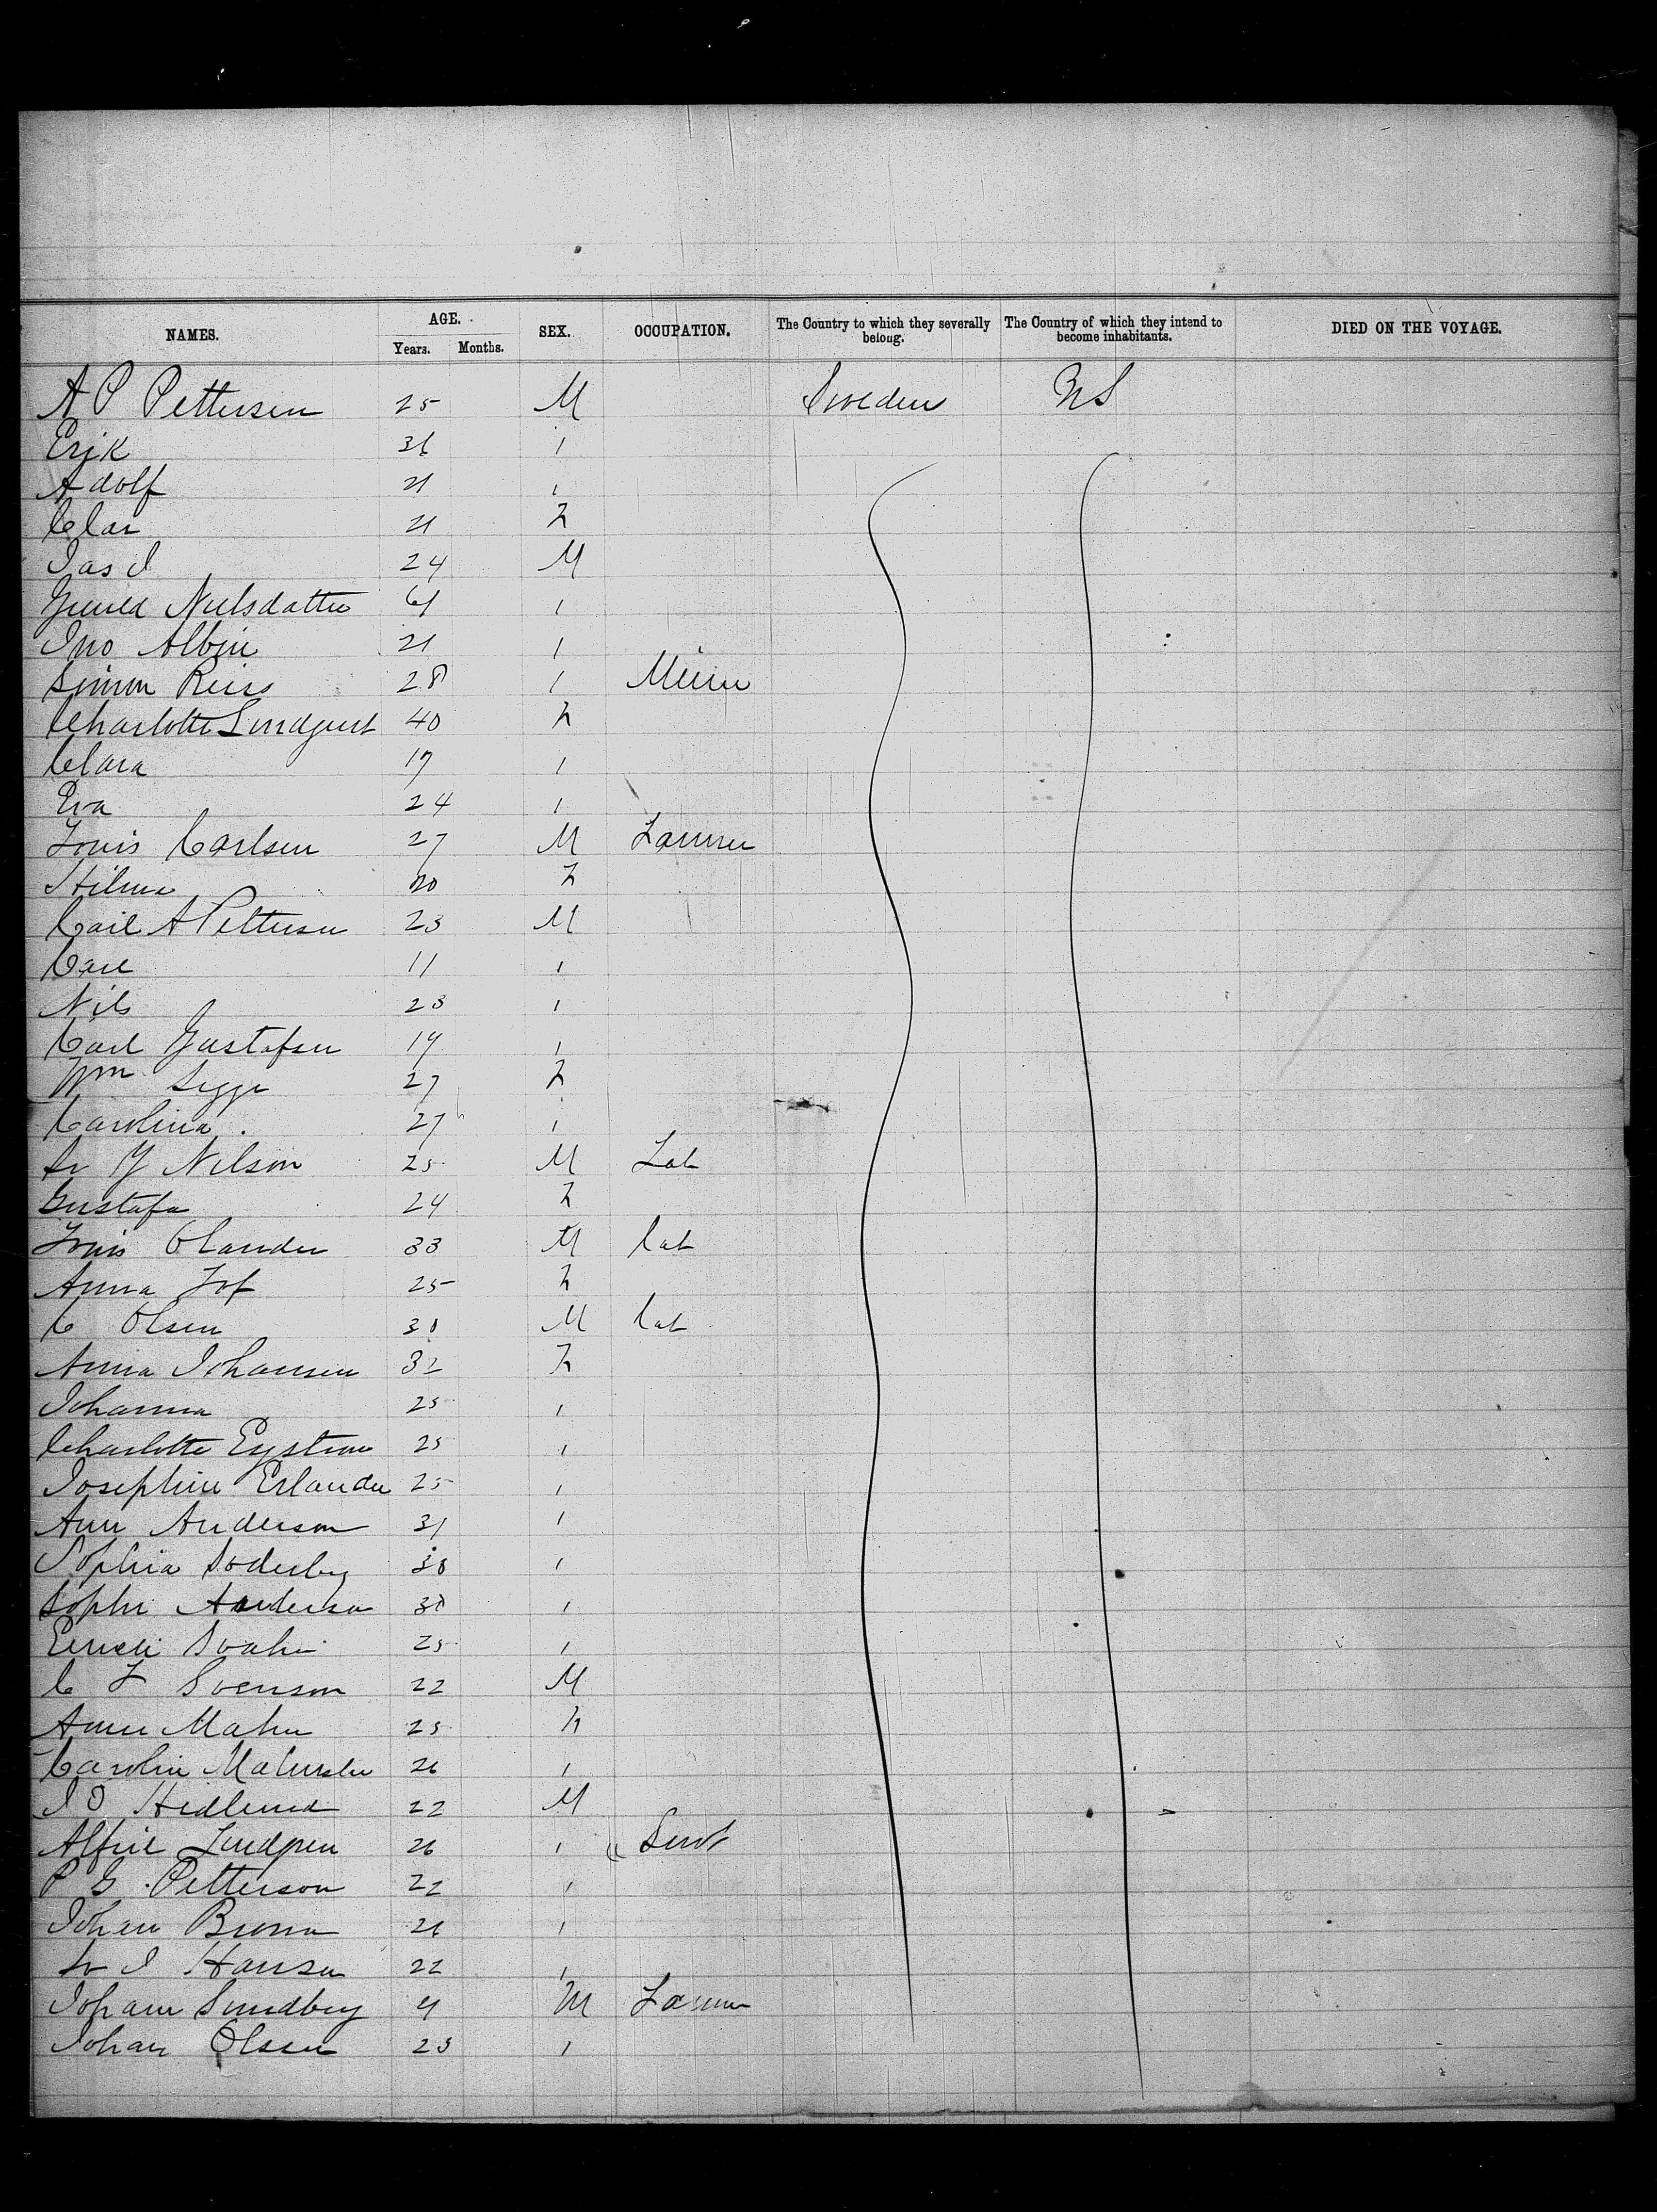 NAMES. AGE. SEX. OCCUPATION. The Country to which they severally belong. The Country of which they intend to become inhabitants. DIED ON THE VOYAGE.
Years. Months.
A P Pettersen 25 M Sweden US
Erik 36 1
Adolf 21 1
Clar 21 F
Jas J 24 M
Nielsdatter 61 1
Jno Albin 21 1
Simon Reiss 28 1 Miner
Charlotte Lindquist 40 F
Clara 17 1
Eva 24 1
Louis Carlsen 27 M Farmer
Hilma 20 F
Carl A Pettersen 23 M
Carl 11 1
Nils 23 1
Carl Gustafsen 19 1
Wm Segge 27 F
Carolina 27 1
Nilson 25 M Lab
Gustafa 24 F
Louis Olander 33 M Lab
Anna Lof 25 F
C Olsen 30 M Lab
Anna Johansen 32 F
Johanna 25 1
Charlotte Egstrom 25 1
Josephine Erlander 25 1
Ann Anderson 31 1
Sophia Soderberg 38 1
Sophi Anderson 30 1
Svahn 25 1
C F Svenson 22 M
Anna Malm 25 F
Carolin 26 1
J O Hedlund 22 M
Alfred Lindgren 26 1 Servt
P G Petterson 22 1
Johan 26 1
J Hansen 22 1
Johann Sundberg 41 M Farmer
Johan Olsen 23 1